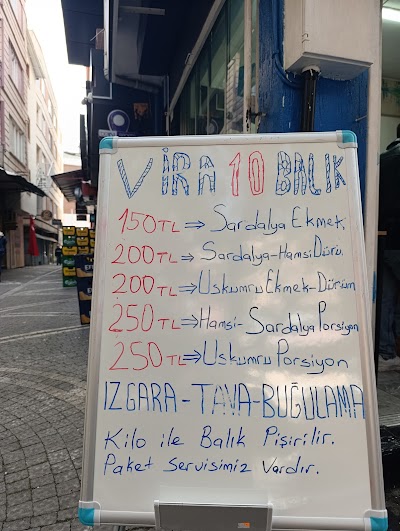 VİRA 10 BALIK
150TL ⇒ Sardalya Ekmek.
200TL ⇒ Sardalya-Hamsi Dürü.
200TL ⇒ Uskumru Ekmek-Dürüm
250TL ⇒ Hamsi-Sardalya Porsiyon
250TL ⇒ Uskumru Porsiyon
IZGARA-TAVA-BUĞULAMA
Kilo ile Balık Pişirilir.
Paket Servisimiz Vardır.